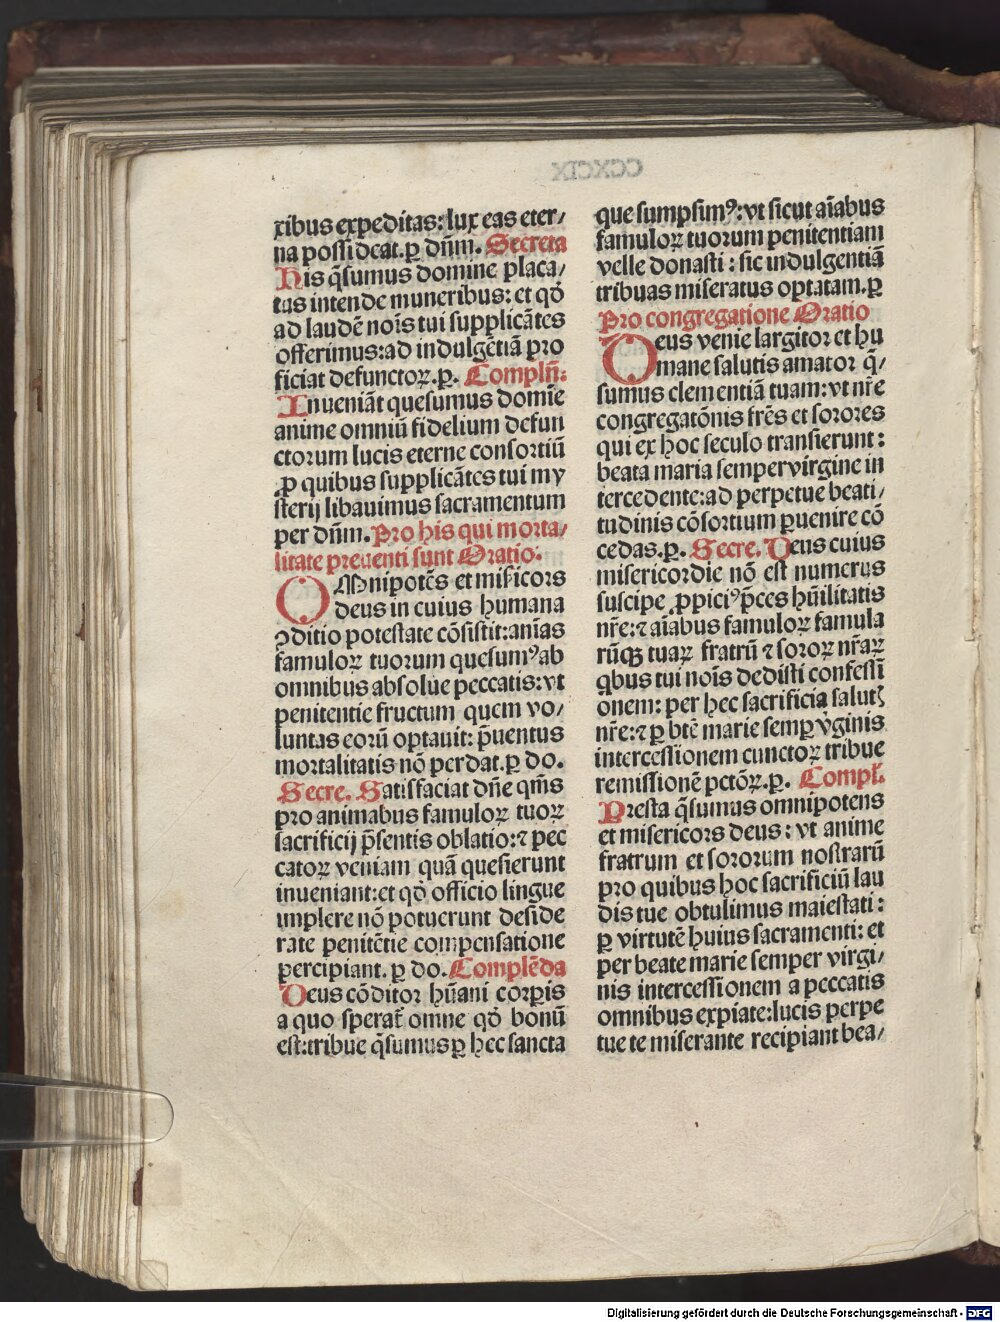 xibus expeditas: lux eas eter/
na possideat. ꝑ dñm. Secreta
His q̃sumus domine placa/
tus intende muneribus: et qđ
ad laudẽ noĩs tui supplicãtes
offerimus: ad indulgẽtiã pro
ficiat defunctoꝝ. ꝑ. Complñ:
Inueniãt quesumus domĩe
anime omniũ fidelium defun
ctorum lucis eterne consortiũ
ꝓ quibus supplicãtes tui my
sterij libauimus sacramentum
per dñm. Pro his qui morta/
litate preuenti sunt Oratio.
OMnipotẽs et misicors
deus in cuius humana
ꝯditio potestate cõsistit: anĩas
famuloꝝ tuorum quesumꝰ ab
omnibus absolue peccatis: vt
penitentie fructum quem vo/
luntas eorũ optauit: p̃uentus
mortalitatis nõ perdat. ꝑ do.
Secre. Satisfaciat dñe qm̃s
pro animabus famuloꝝ tuoꝝ
sacrificij p̃sentis oblatio: ⁊ pec
catoꝝ veniam quã quesierunt
inueniant: et qđ officio lingue
implere nõ potuerunt deside
rate penitẽtie compensatione
percipiant. ꝑ do. Complẽda
Deus cõditor hũani corꝑis
a quo sperat̃ omne qđ bonũ
est: tribue q̃sumus ꝑ hec sancta
que sumpsimꝰ: vt sicut aĩabus
famuloꝝ tuorum penitentiam
velle donasti: sic indulgentiã
tribuas miseratus optatam. ꝑ
Pro congregatione Oratio
Deus venie largitor et hu
mane salutis amator q̃/
sumus clementiã tuam: vt nr̃e
congregatõnis fr̃es et sorores
qui ex hoc seculo transierunt:
beata maria semper virgine in
tercedente: ad perpetue beati/
tudinis cõsortium ꝑuenire cõ
cedas. ꝑ. Secre. Deus cuius
misericordie nõ est numerus
suscipe ꝓpiciꝰ p̃ces hũilitatis
nr̃e: ⁊ aĩabus famuloꝝ famula
rũqꝫ tuaꝝ fratrũ ⁊ soroꝝ nr̃aꝝ
qbus tui noĩs dedisti confessi
onem: per hec sacrificia salutꝭ
nr̃e: ⁊ ꝑ btẽ marie semꝑ v̓ginis
intercessionem cunctoꝝ tribue
remissionẽ pctõꝝ. ꝑ. Compl̃.
Presta q̃sumus omnipotens
et misericors deus: vt anime
fratrum et sororum nostrarũ
pro quibus hoc sacrificiũ lau
dis tue obtulimus maiestati:
ꝑ virtutẽ huius sacramenti: et
per beate marie semper virgi/
nis intercessionem a peccatis
omnibus expiate: lucis perpe
tue te miserante recipiant bea/
Digitalisierung gefördert durch die Deutsche Forschungsgemeinschaft - DFG